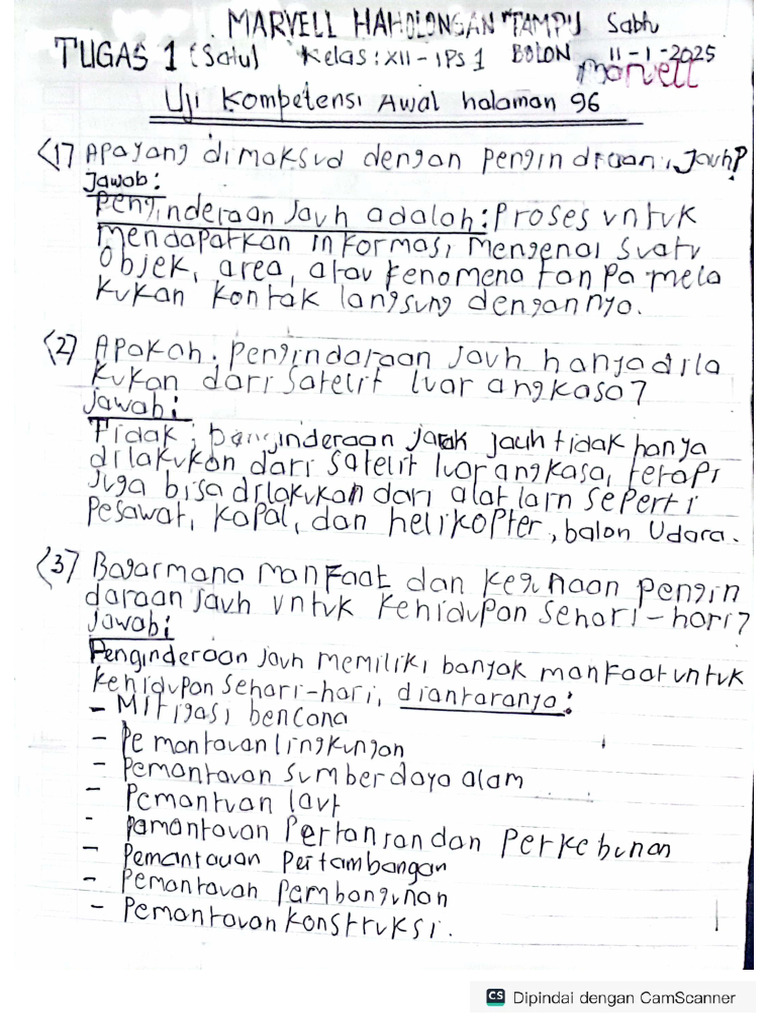 MARVELL HAHOLONGAN TAMPU Sabtu
TUGAS 1 (Satu) Kelas: XII - IPS 1 BOLON 11-1-2025
Marvell
Uji Kompetensi Awal halaman 96
(1) Apa yang dimaksud dengan pengindraan, Jauh?
Jawab:
Penginderaan Jauh adalah: Proses untuk
mendapatkan informasi mengenai suatu
objek, area, atau fenomena tanpa mela
kukan kontak langsung dengannya.
(2) Apakah. pengindaraan jauh hanya dila
kukan dari satelit luar angkasa?
Jawab:
Tidak, penginderaan jauh tidak hanya
dilakukan dari satelit luar angkasa, tetapi
juga bisa dilakukan dari alat lain seperti
pesawat, kapal, dan helikopter, balon Udara.
(3) Bagaimana manfaat dan kegunaan pengin
daraan jauh untuk kehidupan sehari-hari?
Jawab:
Penginderaan jauh memiliki banyak manfaat untuk
kehidupan sehari-hari, diantaranya:
- Mitigasi bencana
- Pemantauan lingkungan
- Pemantauan sumber daya alam
- Pemantuan laut
- Pemantauan Pertanian dan Perkebunan
- Pemantauan Pertambangan
- Pemantauan Pembangunan
- Pemantauan Konstruksi.
CS Dipindai dengan CamScanner